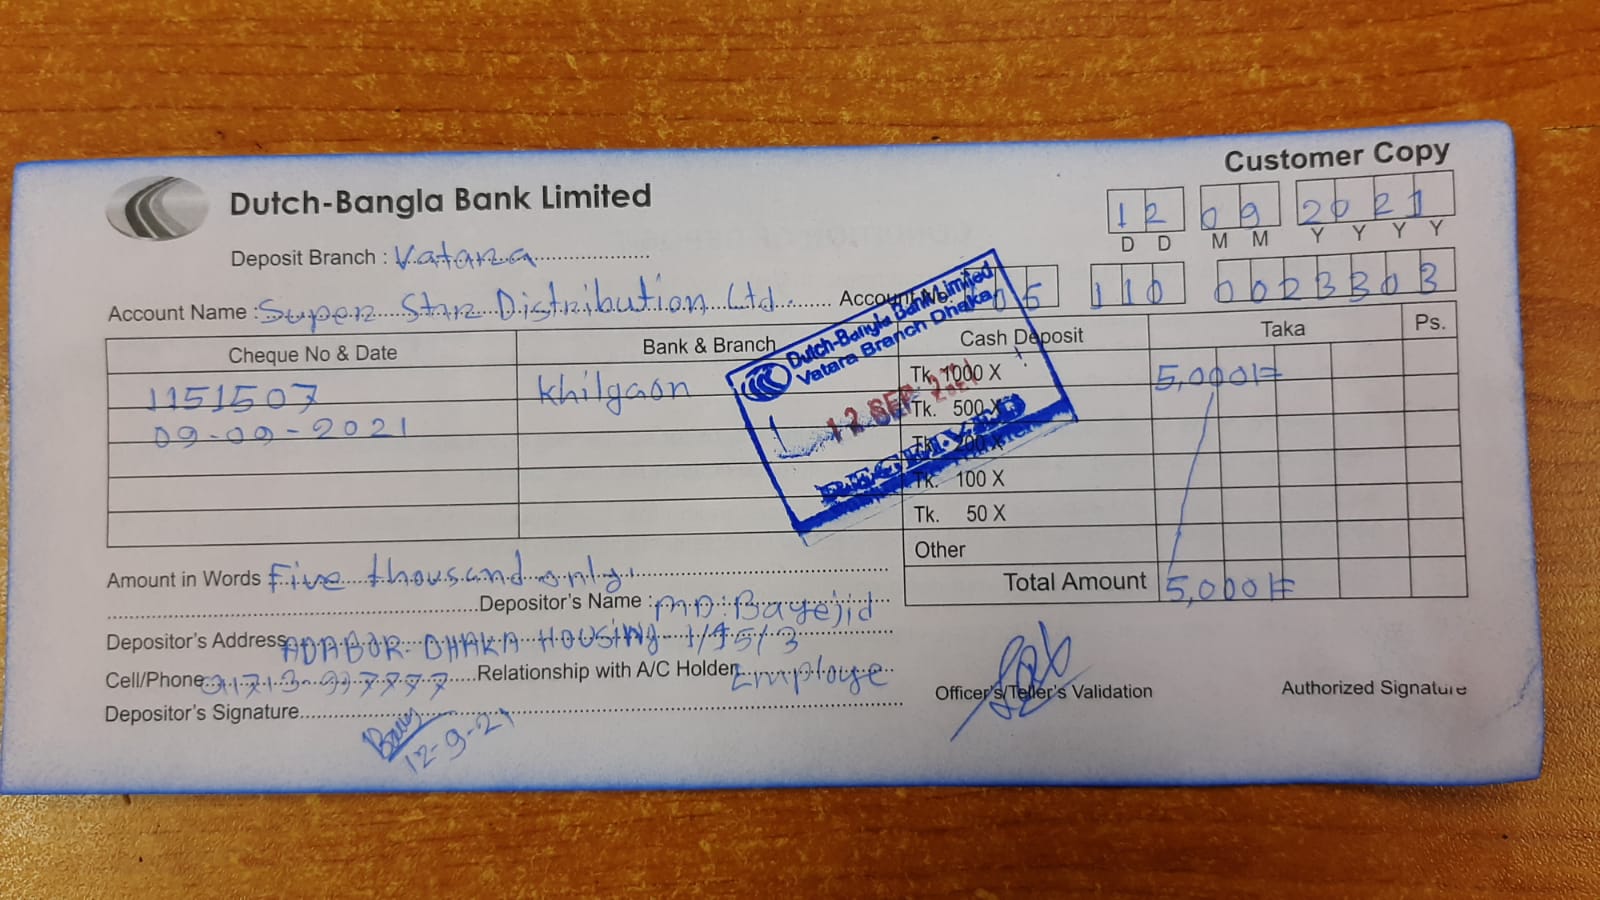 Customer Copy
Dutch-Bangla Bank Limited
12 09 2021
D D M M Y Y Y Y
Deposit Branch : Vatara
Account Name : Super Star Distribution Ltd. Account No. 05 110 0023303
Cheque No & Date Bank & Branch Cash Deposit Taka Ps.
1151507 Khilgaon Tk. 1000 X 5,000/=
09-09-2021 Tk. 500 X
Tk. 200 X
Tk. 100 X
Tk. 50 X
Other
Total Amount 5,000/=
Dutch-Bangla Bank Limited
Vatara Branch Dhaka
12 SEP 2021
RECEIVED
Amount in Words Five thousand only.
Depositor's Name : MD: Bayejid
Depositor's Address ADABOR DHAKA HOUSING-1/15/3
Cell/Phone Relationship with A/C Holder Employe
Depositor's Signature
12-9-21
Officer's/Teller's Validation Authorized Signature